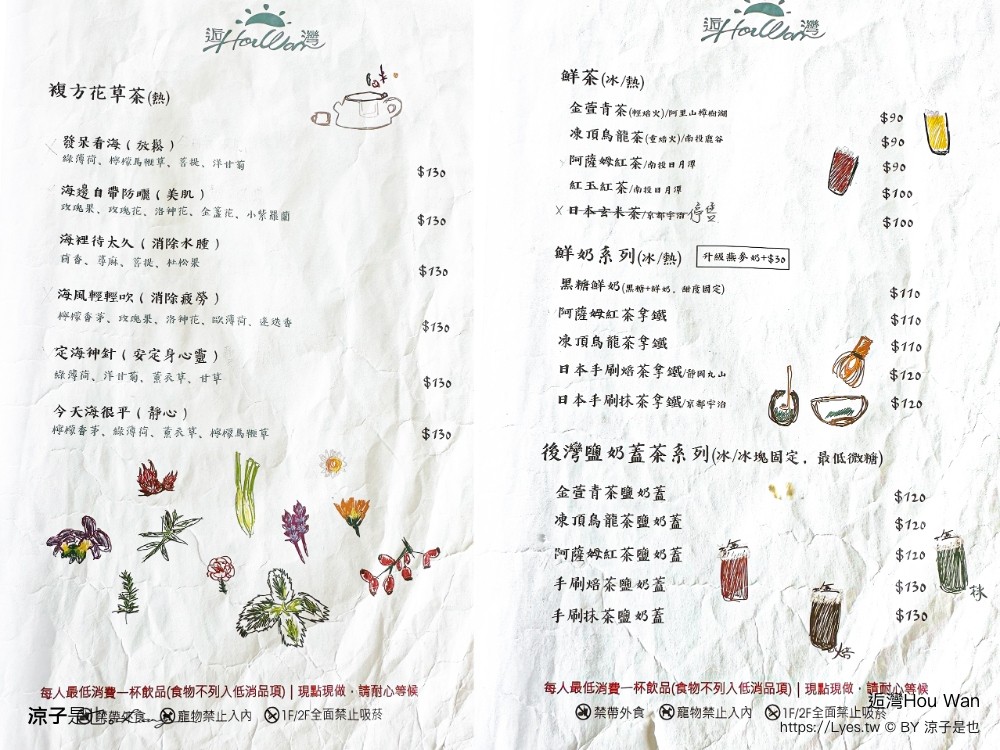 逅灣
HouWan
複方花草茶(熱)
發呆看海(放鬆)
綠薄荷、檸檬馬鞭草、菩提、洋甘菊
$130
海邊自帶防曬(美肌)
玫瑰果、玫瑰花、洛神花、金盞花、小紫羅蘭
$130
海裡待太久(消除水腫)
茴香、蕁麻、菩提、杜松果
$130
海風輕輕吹(消除疲勞)
檸檬香茅、玫瑰果、洛神花、歐薄荷、迷迭香
$130
定海神針(安定身心靈)
綠薄荷、洋甘菊、薰衣草、甘草
$130
今天海很平(靜心)
檸檬香茅、綠薄荷、薰衣草、檸檬馬鞭草
$130
每人最低消費一杯飲品(食物不列入低消品項)|現點現做,請耐心等候
禁帶外食 寵物禁止入內 1F/2F全面禁止吸菸
涼子是也
逅灣
HouWan
鮮茶(冰/熱)
金萱青茶(輕焙火)/阿里山樟樹湖 $90
凍頂烏龍茶(重焙火)/南投鹿谷 $90
阿薩姆紅茶/南投日月潭 $90
紅玉紅茶/南投日月潭 $100
x 日本玄米茶/京都宇治 停售 $100
鮮奶系列(冰/熱) 升級燕麥奶+$30
黑糖鮮奶(黑糖+鮮奶,甜度固定) $110
阿薩姆紅茶拿鐵 $110
凍頂烏龍茶拿鐵 $110
日本手刷焙茶拿鐵/靜岡丸山 $120
日本手刷抹茶拿鐵/京都宇治 $120
後灣鹽奶蓋茶系列(冰/冰塊固定,最低微糖)
金萱青茶鹽奶蓋 $120
凍頂烏龍茶鹽奶蓋 $120
阿薩姆紅茶鹽奶蓋 $120
手刷焙茶鹽奶蓋 $130
手刷抹茶鹽奶蓋 $130
抹
焙
每人最低消費一杯飲品(食物不列入低消品項)|現點現做,請耐心等候
禁帶外食 寵物禁止入內 1F/2F全面禁止吸菸
逅灣Hou Wan
https://Lyes.tw © BY 涼子是也